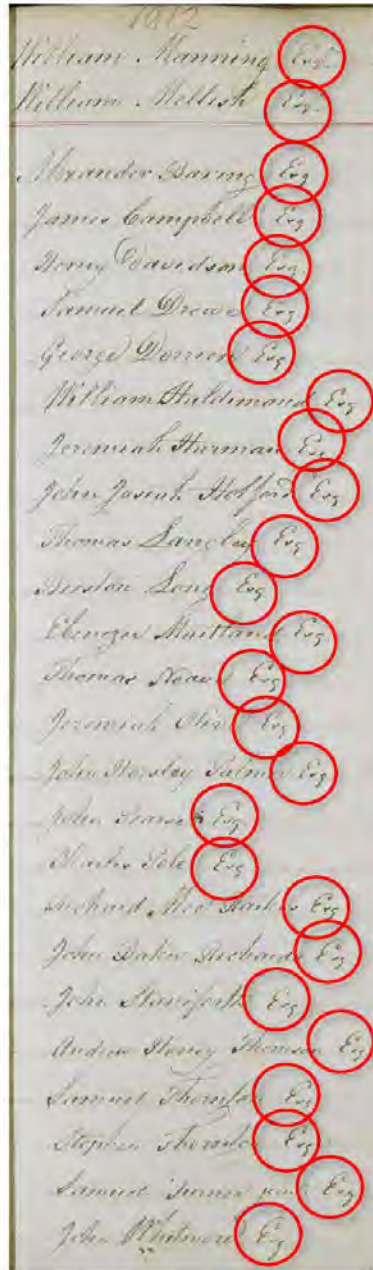 1812
William Manning Esq.
William Mellish Esq.
Alexander Baring Esq
James Campbell Esq
Henry Davidson Esq
Samuel Drewe Esq
George Dorrien Esq
William Haldimand Esq
Jeremiah Harman Esq
John Josiah Holford Esq
Thomas Langley Esq
Beeston Long Esq
Ebenezer Maitland Esq
Thomas Neave Esq
Jeremiah Olive Esq
John Horsley Palmer Esq
John Pearse Esq
Charles Pole Esq
Richard Mee Raikes Esq
John Baker Richards Esq
John Staniforth Esq
Andrew Henry Thomson Esq
Samuel Thornton Esq
Stephen Thornton Esq
Samuel Turner junr Esq
John Whitmore Esq